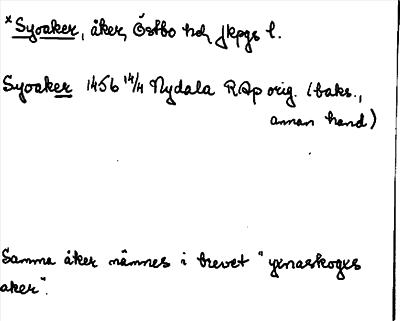 *Syoaker, åker, Östbo hd, Jkpgs l.
Syoaker 1456 14/4 Nydala RAp orig. (baks.,
annan hand)
Samma åker nämnes i brevet "yxnaskogxs
aker".